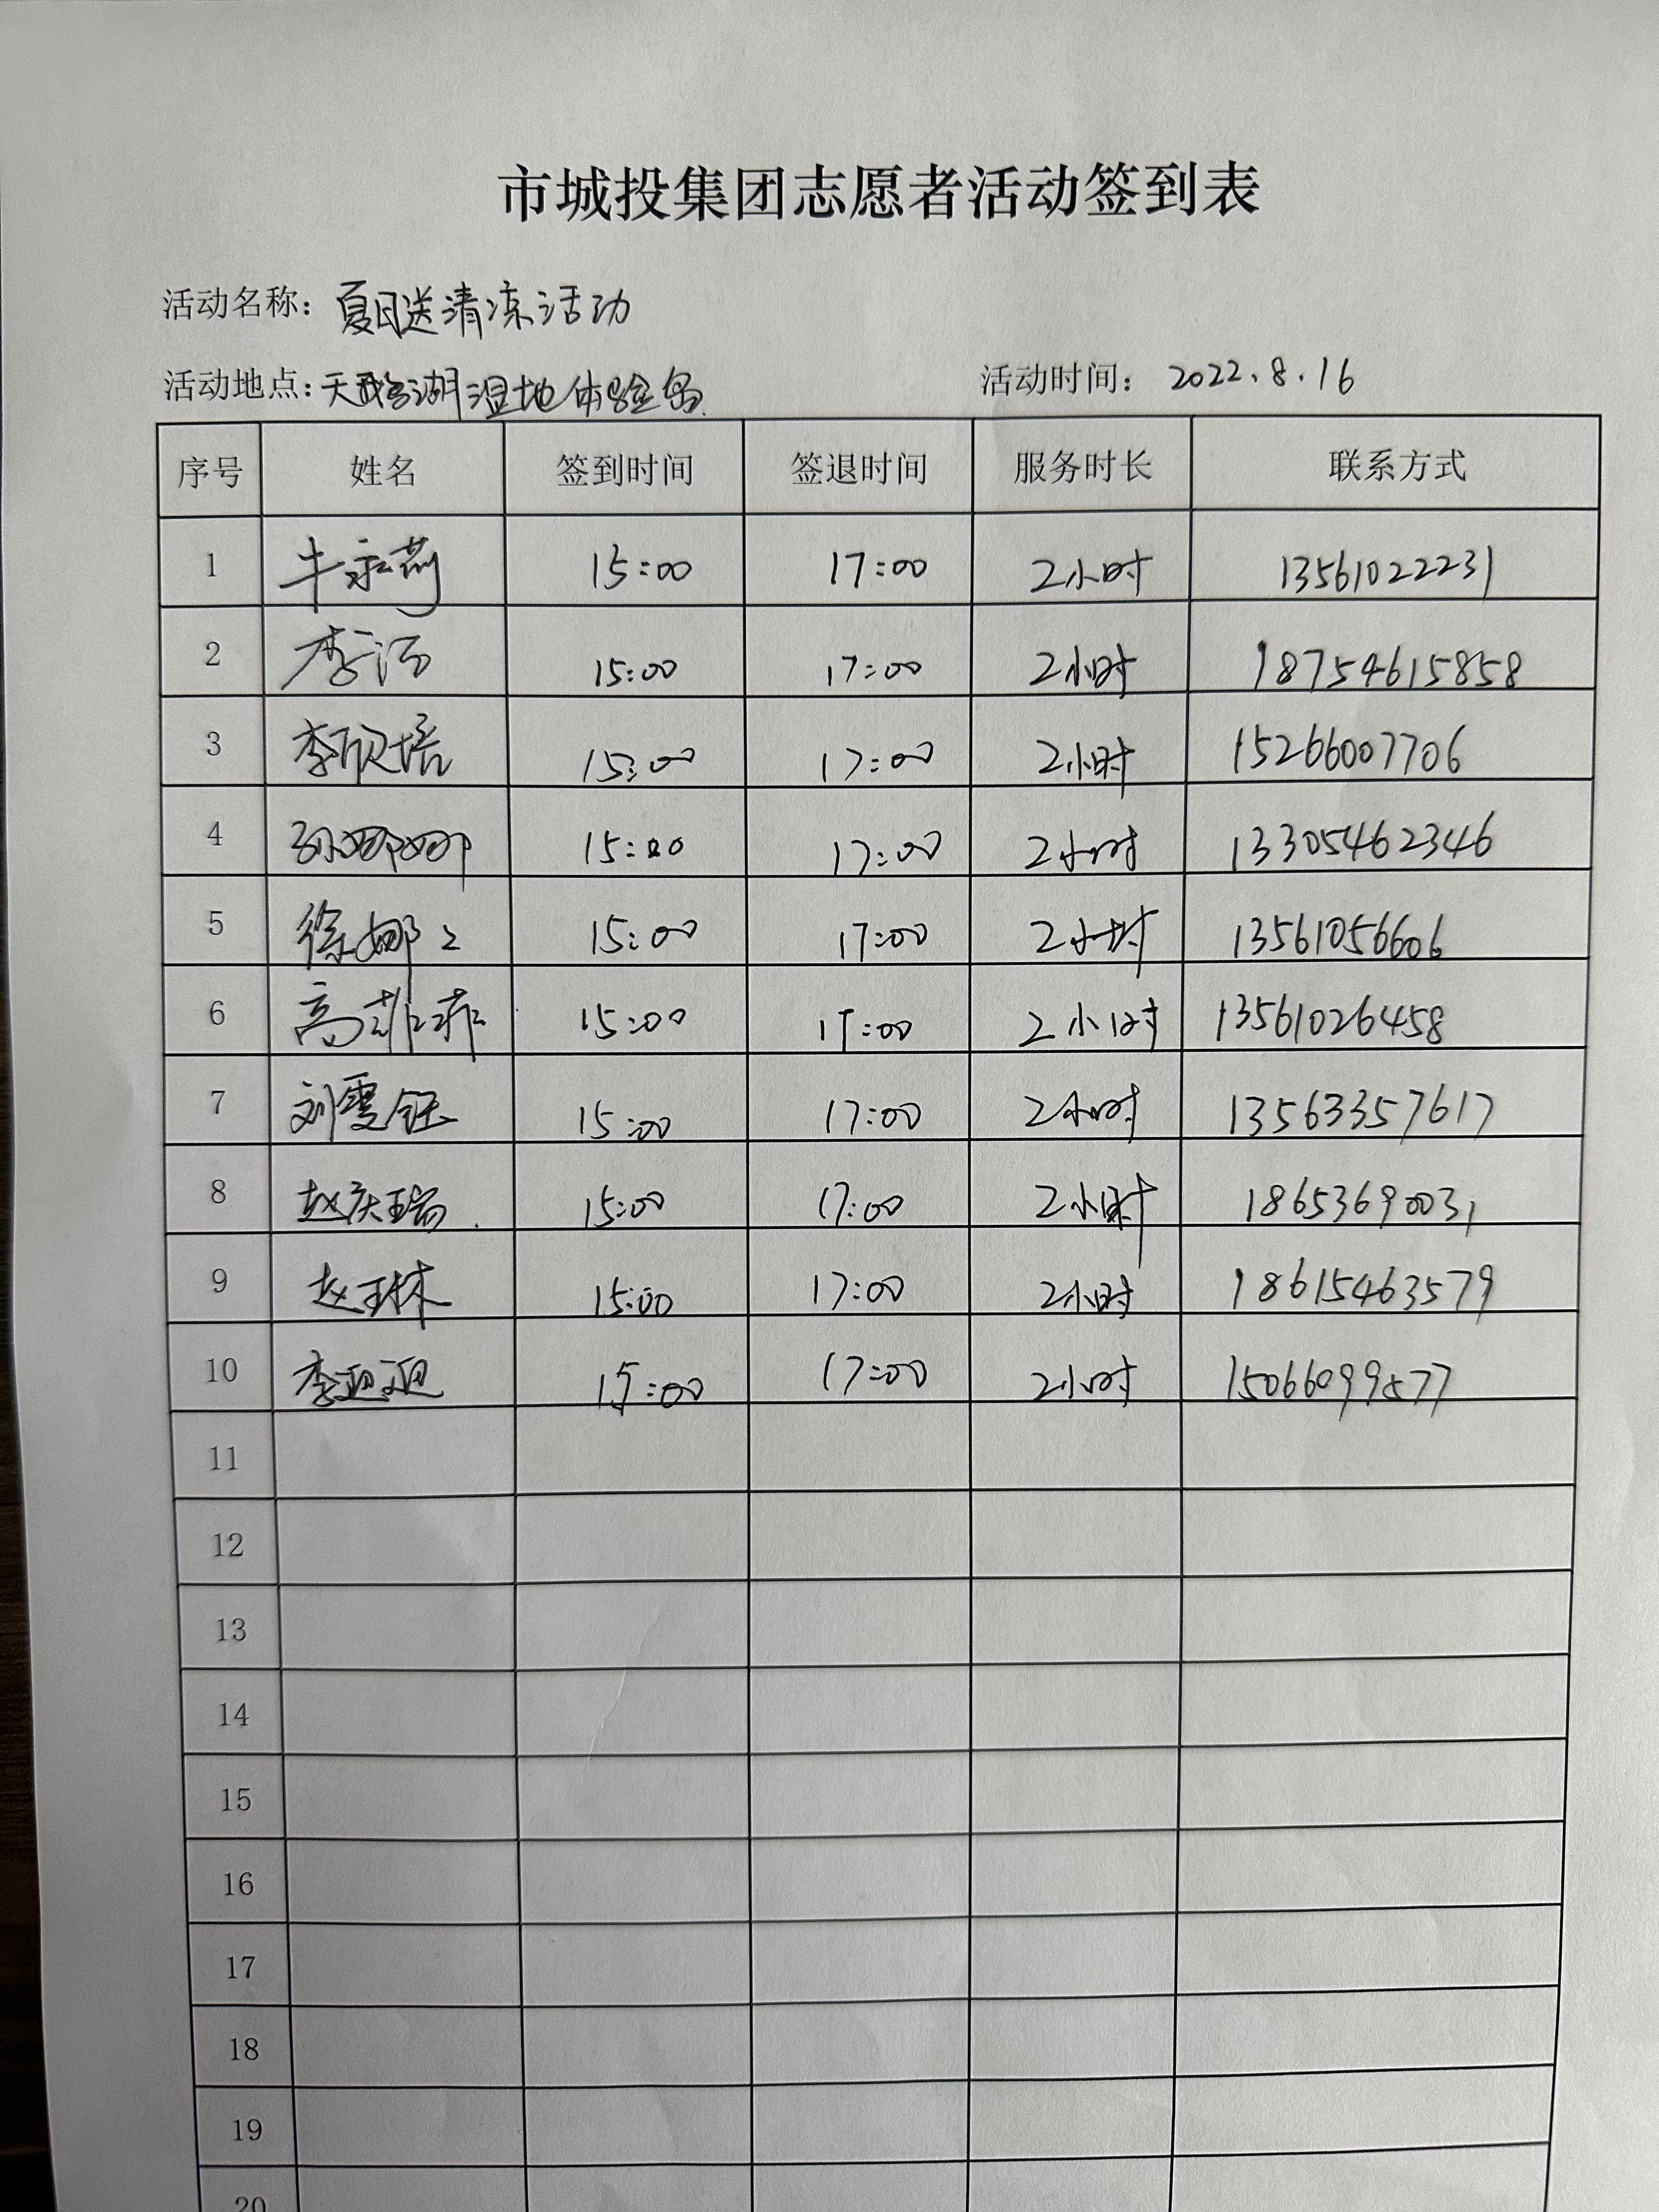 市城投集团志愿者活动签到表
活动名称：夏日送清凉活动
活动地点：天鹅湖湿地体验岛 活动时间：2022.8.16
序号 姓名 签到时间 签退时间 服务时长 联系方式
1 牛永莉 15:00 17:00 2小时 13561022231
2 李 15:00 17:00 2小时 18754615858
3 李欣培 15:00 17:00 2小时 15266007706
4 孙娜娜 15:00 17:00 2小时 13305462346
5 徐娜2 15:00 17:00 2小时 13561056606
6 高菲菲 15:00 17:00 2小时 13561026458
7 刘雯钰 15:00 17:00 2小时 13563357617
8 赵庆瑞 15:00 17:00 2小时 18653690031
9 赵琳 15:00 17:00 2小时 18615463579
10 李迎迎 15:00 17:00 2小时 15066099577
11
12
13
14
15
16
17
18
19
20